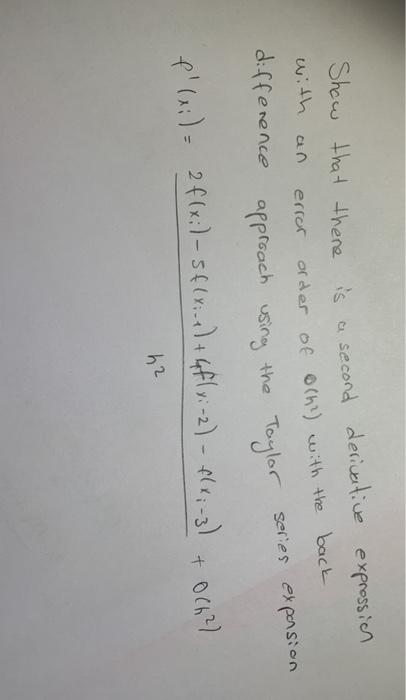 Show that there is a second derivative expression
with an error order of O(h²) with the back
difference approach using the Taylor series expansion
f'(xi) = 2f(xi) - 5f(xi-1) + 4f(xi-2) - f(xi-3) + O(h²)
h²